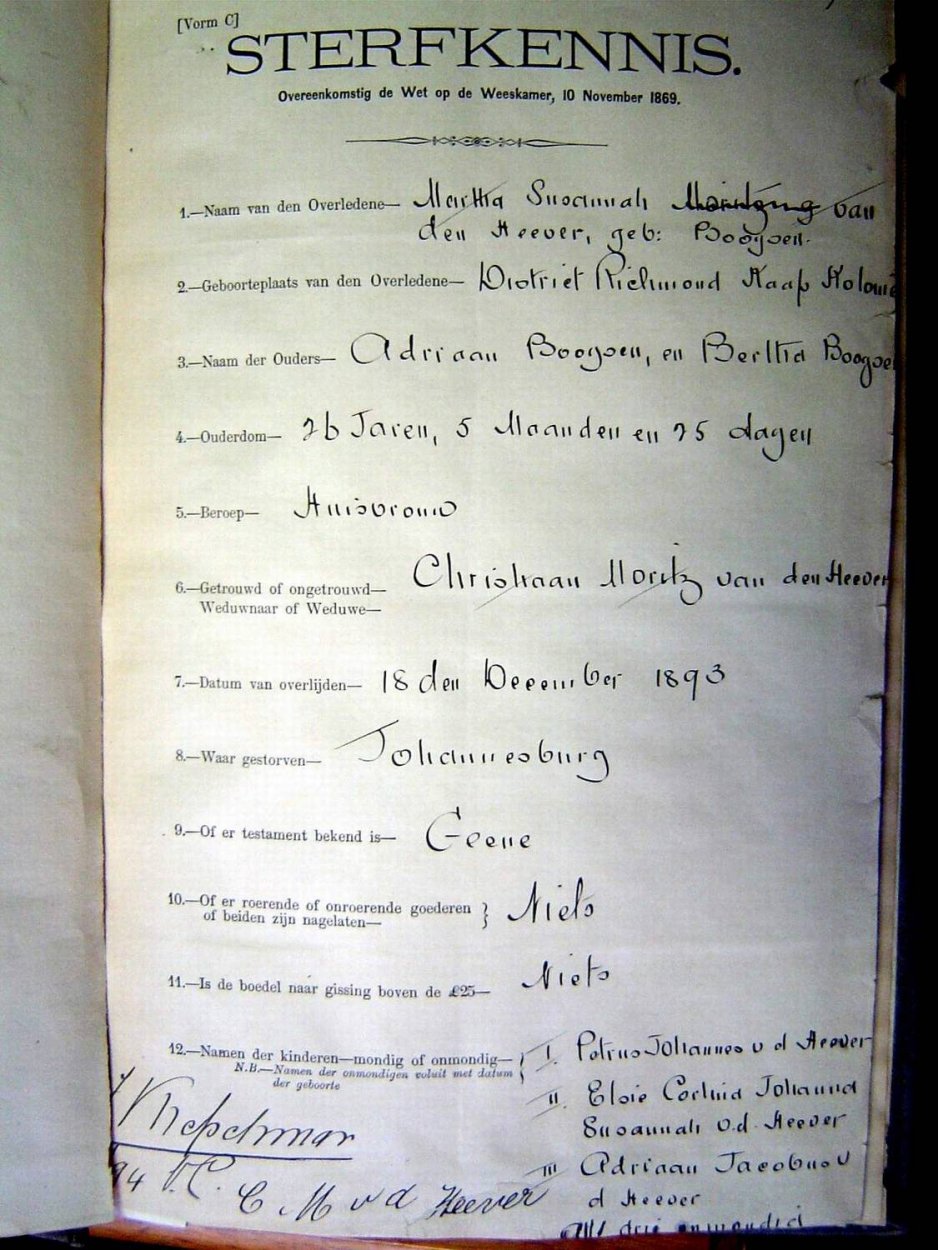 [Vorm C]
STERFKENNIS.
Overeenkomstig de Wet op de Weeskamer, 10 November 1869.
1.—Naam van den Overledene— Martha Susannah van
den Heever, geb: Booysen.
2.—Geboorteplaats van den Overledene— District Richmond Kaap Kolonie
3.—Naam der Ouders— Adriaan Booysen, en Bertha Booysen
4.—Ouderdom— 26 Jaren, 5 Maanden en 25 dagen
5.—Beroep— Huisvrouw
6.—Getrouwd of ongetrouwd— Christiaan Moritz van den Heever
Weduwnaar of Weduwe—
7.—Datum van overlijden— 18 den December 1893
8.—Waar gestorven— Johannesburg
9.—Of er testament bekend is— Geene
10.—Of er roerende of onroerende goederen } Niets
of beiden zijn nagelaten—
11.—Is de boedel naar gissing boven de £25— Niets
12.—Namen der kinderen—mondig of onmondig— { I. Petrus Johannes v d Heever
N.B.—Namen der onmondigen voluit met datum
der geboorte
II. Elsie Johanna
Susannah v.d. Heever
III Adriaan Jacobus v
d Heever
drie onmondig
94 V.C.
C M v d Heever